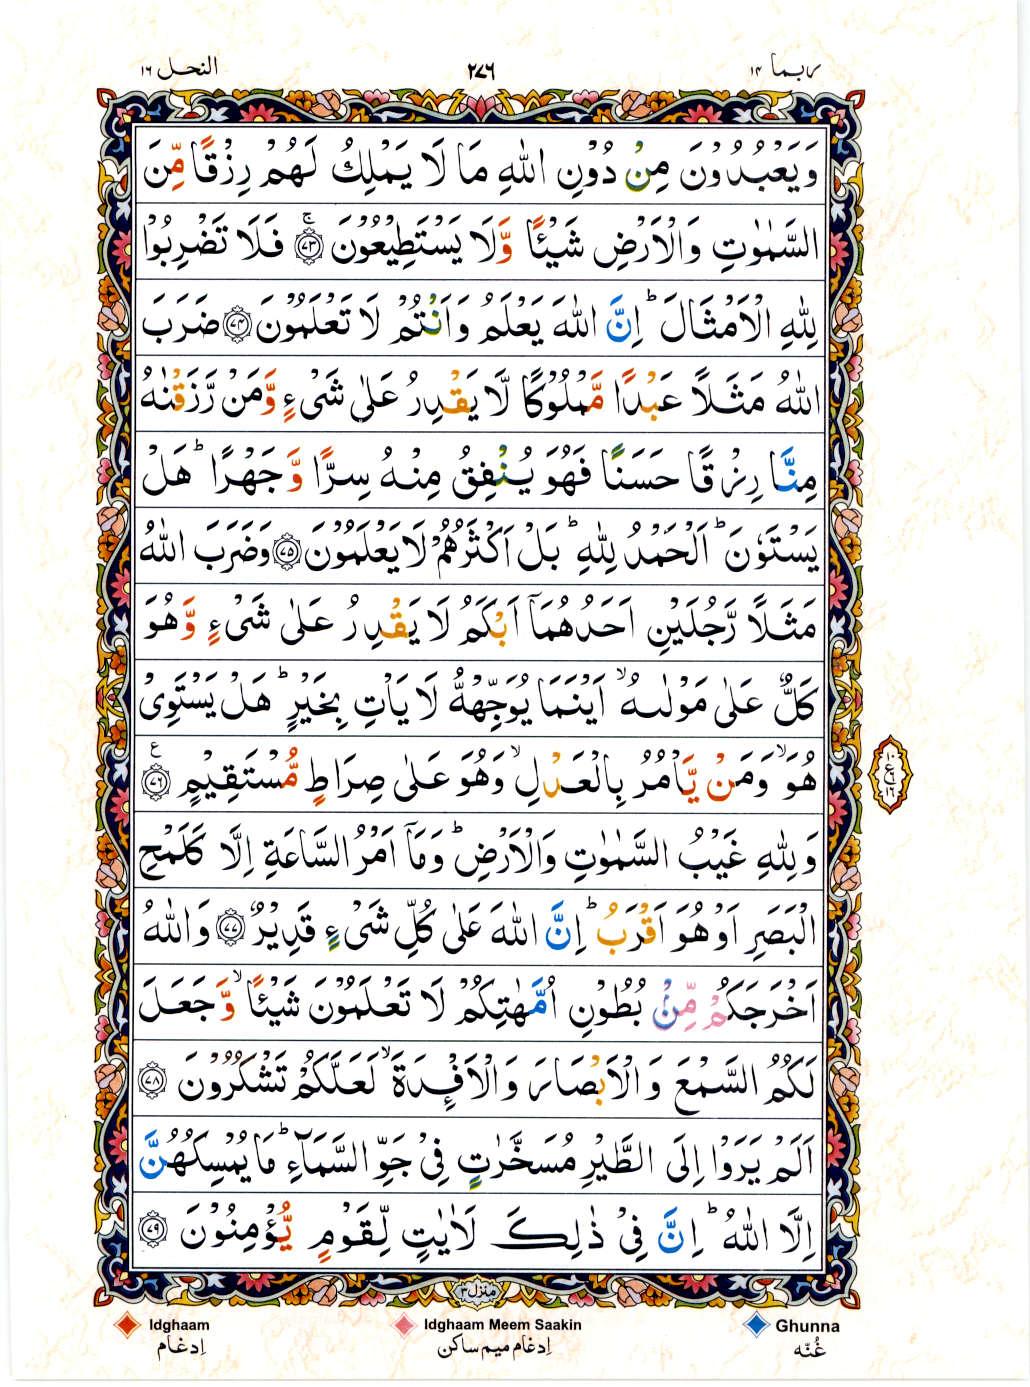 ربما ۱۴
۲۷۶
النحل ۱۶
وَيَعْبُدُوْنَ مِنْ دُوْنِ اللّٰهِ مَا لَا يَمْلِكُ لَهُمْ رِزْقًا مِّنَ
السَّمٰوٰتِ وَالْاَرْضِ شَيْـًٔا وَّلَا يَسْتَطِيْعُوْنَ ۚ ﴿۷۳﴾ فَلَا تَضْرِبُوْا
لِلّٰهِ الْاَمْثَالَ ؕ اِنَّ اللّٰهَ يَعْلَمُ وَاَنْتُمْ لَا تَعْلَمُوْنَ ﴿۷۴﴾ ضَرَبَ
اللّٰهُ مَثَلًا عَبْدًا مَّمْلُوْكًا لَّا يَقْدِرُ عَلٰى شَىْءٍ وَّمَنْ رَّزَقْنٰهُ
مِنَّا رِزْقًا حَسَنًا فَهُوَ يُنْفِقُ مِنْهُ سِرًّا وَّجَهْرًا ؕ هَلْ
يَسْتَوٗنَ ؕ اَلْحَمْدُ لِلّٰهِ ؕ بَلْ اَكْثَرُهُمْ لَا يَعْلَمُوْنَ ﴿۷۵﴾ وَضَرَبَ اللّٰهُ
مَثَلًا رَّجُلَيْنِ اَحَدُهُمَاۤ اَبْكَمُ لَا يَقْدِرُ عَلٰى شَىْءٍ وَّهُوَ
كَلٌّ عَلٰى مَوْلٰىهُ ۙ اَيْنَمَا يُوَجِّهْهُّ لَا يَاْتِ بِخَيْرٍ ؕ هَلْ يَسْتَوِىْ
هُوَ ۙ وَمَنْ يَّاْمُرُ بِالْعَدْلِ ۙ وَهُوَ عَلٰى صِرَاطٍ مُّسْتَقِيْمٍ ﴿۷۶﴾ ع
وَلِلّٰهِ غَيْبُ السَّمٰوٰتِ وَالْاَرْضِ ؕ وَمَاۤ اَمْرُ السَّاعَةِ اِلَّا كَلَمْحِ
الْبَصَرِ اَوْ هُوَ اَقْرَبُ ؕ اِنَّ اللّٰهَ عَلٰى كُلِّ شَىْءٍ قَدِيْرٌ ﴿۷۷﴾ وَاللّٰهُ
اَخْرَجَكُمْ مِّنْۢ بُطُوْنِ اُمَّهٰتِكُمْ لَا تَعْلَمُوْنَ شَيْـًٔا ۙ وَّجَعَلَ
لَكُمُ السَّمْعَ وَالْاَبْصَارَ وَالْاَفْـِٕدَةَ ۙ لَعَلَّكُمْ تَشْكُرُوْنَ ﴿۷۸﴾
اَلَمْ يَرَوْا اِلَى الطَّيْرِ مُسَخَّرٰتٍ فِىْ جَوِّ السَّمَآءِ ؕ مَا يُمْسِكُهُنَّ
اِلَّا اللّٰهُ ؕ اِنَّ فِىْ ذٰلِكَ لَاٰيٰتٍ لِّقَوْمٍ يُّؤْمِنُوْنَ ﴿۷۹﴾
منزل ۳
Idghaam
Idghaam Meem Saakin
Ghunna
اِدغام
اِدغام میم ساکن
غُنّه